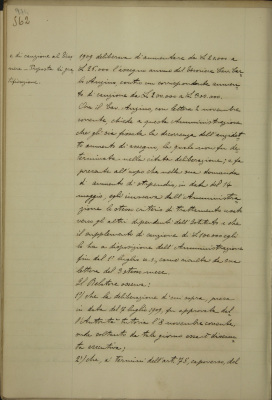 362
e di cauzione al Teso
1909 deliberava di aumentare da £ 2.000 a
£ 25.000 l'assegno annuo del Tesoriere Cav. Car.
Angino, contro un corrispondente aumento
di cauzione da £ 200.000 a £
Ora il Cav. Angino, con lettera 2 novembre
corrente, chiede a questa Amministrazione
che gli sia fissata la decorrenza dell'anzidet
to aumento di assegno, la quale non fu de
terminata nella citata deliberazione; e fa
presente all'uopo che nella sua domanda
di aumento di stipendio, in data del 14
maggio, egli invocava dall'Amministra
zione lo stesso criterio di trattamento usato
verso gli altri dipendenti dell'Istituto e che
il supplemento di cauzione di £ 100.000 egli
lo ha a disposizione dell'Amministrazione
fin dal 1° luglio u.s., come risulta da sua
lettera del 3 stesso mese.
Il Relatore osserva:
1°) che la deliberazione di cui sopra, presa
in data del 7 luglio 1909, fu approvata dal
l'Autorità tutoria l'8 novembre corrente,
onde soltanto da tale giorno essa è divenu
ta esecutiva;
2°) che, a termini dell'art. 75, capoverso, del